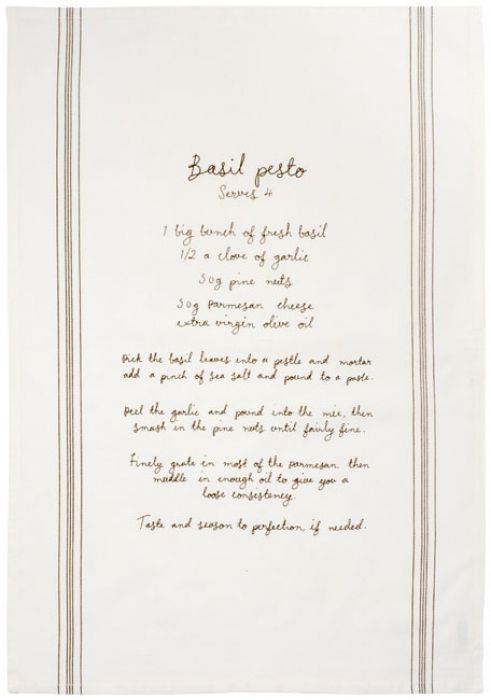 Basil pesto
Serves 4
1 big bunch of fresh basil
1/2 a clove of garlic
50g pine nuts
50g parmesan cheese
extra virgin olive oil
Pick the basil leaves into a pestle and mortar
add a pinch of sea salt and pound to a paste.
Peel the garlic and pound into the mix, then
smash in the pine nuts until fairly fine.
Finely grate in most of the parmesan then
muddle in enough oil to give you a
loose consistency.
Taste and season to perfection, if needed.